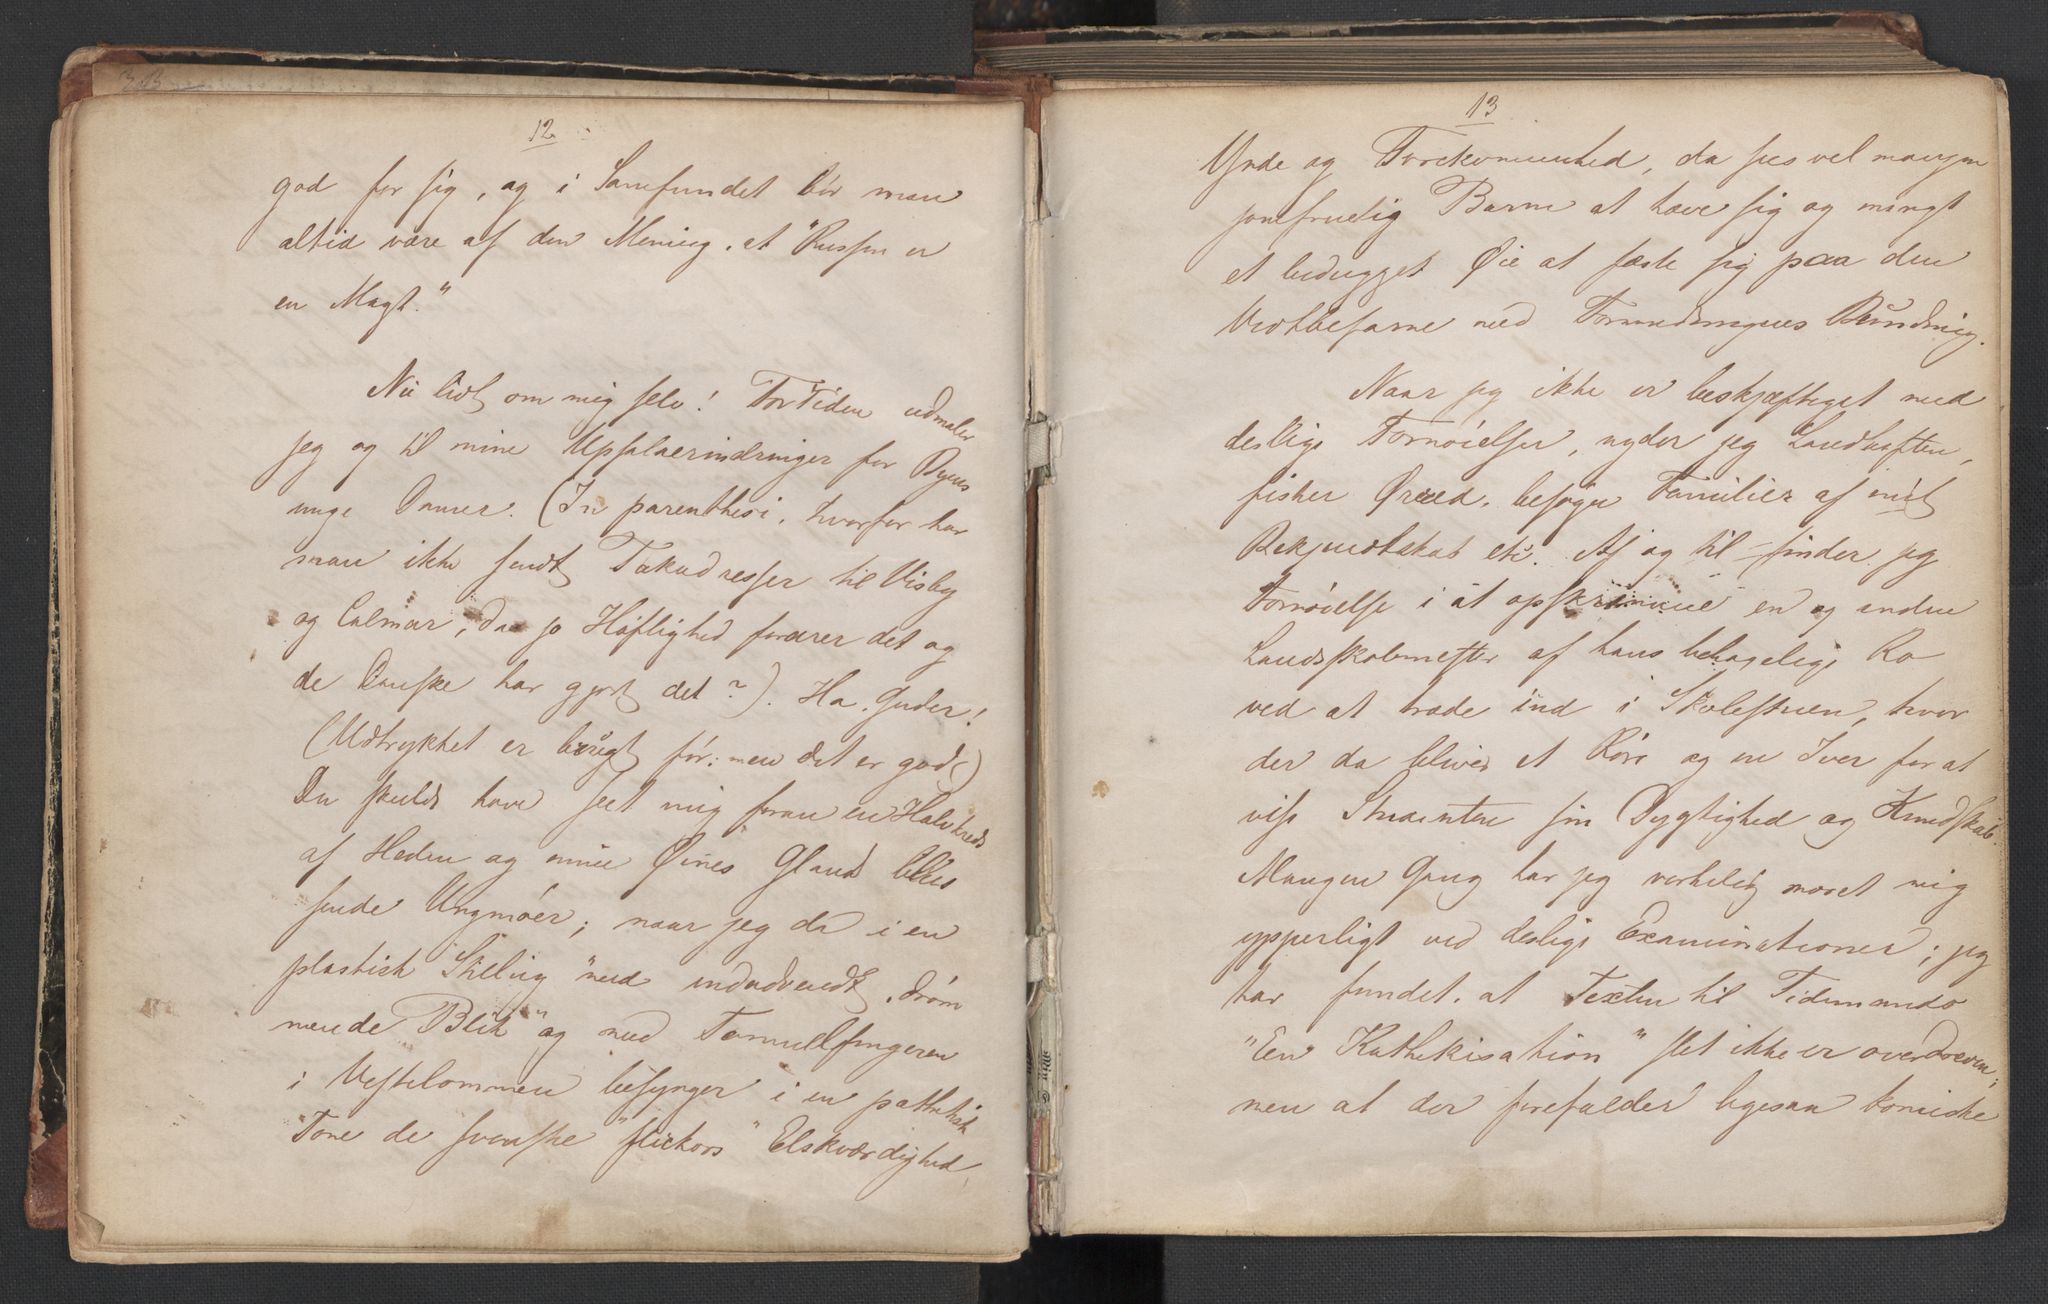 12
god for sig, og i Samfundet bør man
altid være af den Mening, at "Russen er
en Magt."
Nu lidt om mig selv! For Tiden udmaler
jeg og til mine Upsalaerindringer for Byens
unge Damer. (In parenthesi, hvorfor har
man ikke sendt Takadresser til Visby
og Calmar, da jo Høflighed fordrer det og
de Danske har gjort det?). Ha, Guder!
(Udtrykket er brugt før; men det er godt)
Du skulde have seet mig foran en Halvkreds
af Heden og mine Øines Glands
sende Ungmøer; naar jeg da i en
plastisk Stilling "med indadvendt, drøm
mende Blik" og med Tommelfingeren
i Vestelommen besynger i en pathetisk
Tone de svenske "flickors" Elskværdighed,
13
Ynde og Forekommenhed, da sees vel mangen
jomfruelig Barm at hæve sig og mangt
et bedugget Øie at fæste sig paa den
Vidtbefarne med Forundringens Rundning.
Naar jeg ikke er beskjæftiget med
deslige Fornøielser, nyder jeg Landluften,
fisker Ørred, besøger Familier af mit
Bekjendtskab etc. Af og til finder jeg
Fornøielse i at opskræmme en og anden
Landsskolemester af hans behagelige Ro
ved at træde ind i Skolestuen, hvor
der da bliver et Røre og en Iver for at
vise Studenten sin Dygtighed og Kundskab.
Mangen Gang har jeg virkelig moret mig
ypperligt ved deslige Examinationer; jeg
har fundet, at Texten til Tidemands
"En Kathekisation" slet ikke er overdreven;
men at der forefalder ligesaa komiske